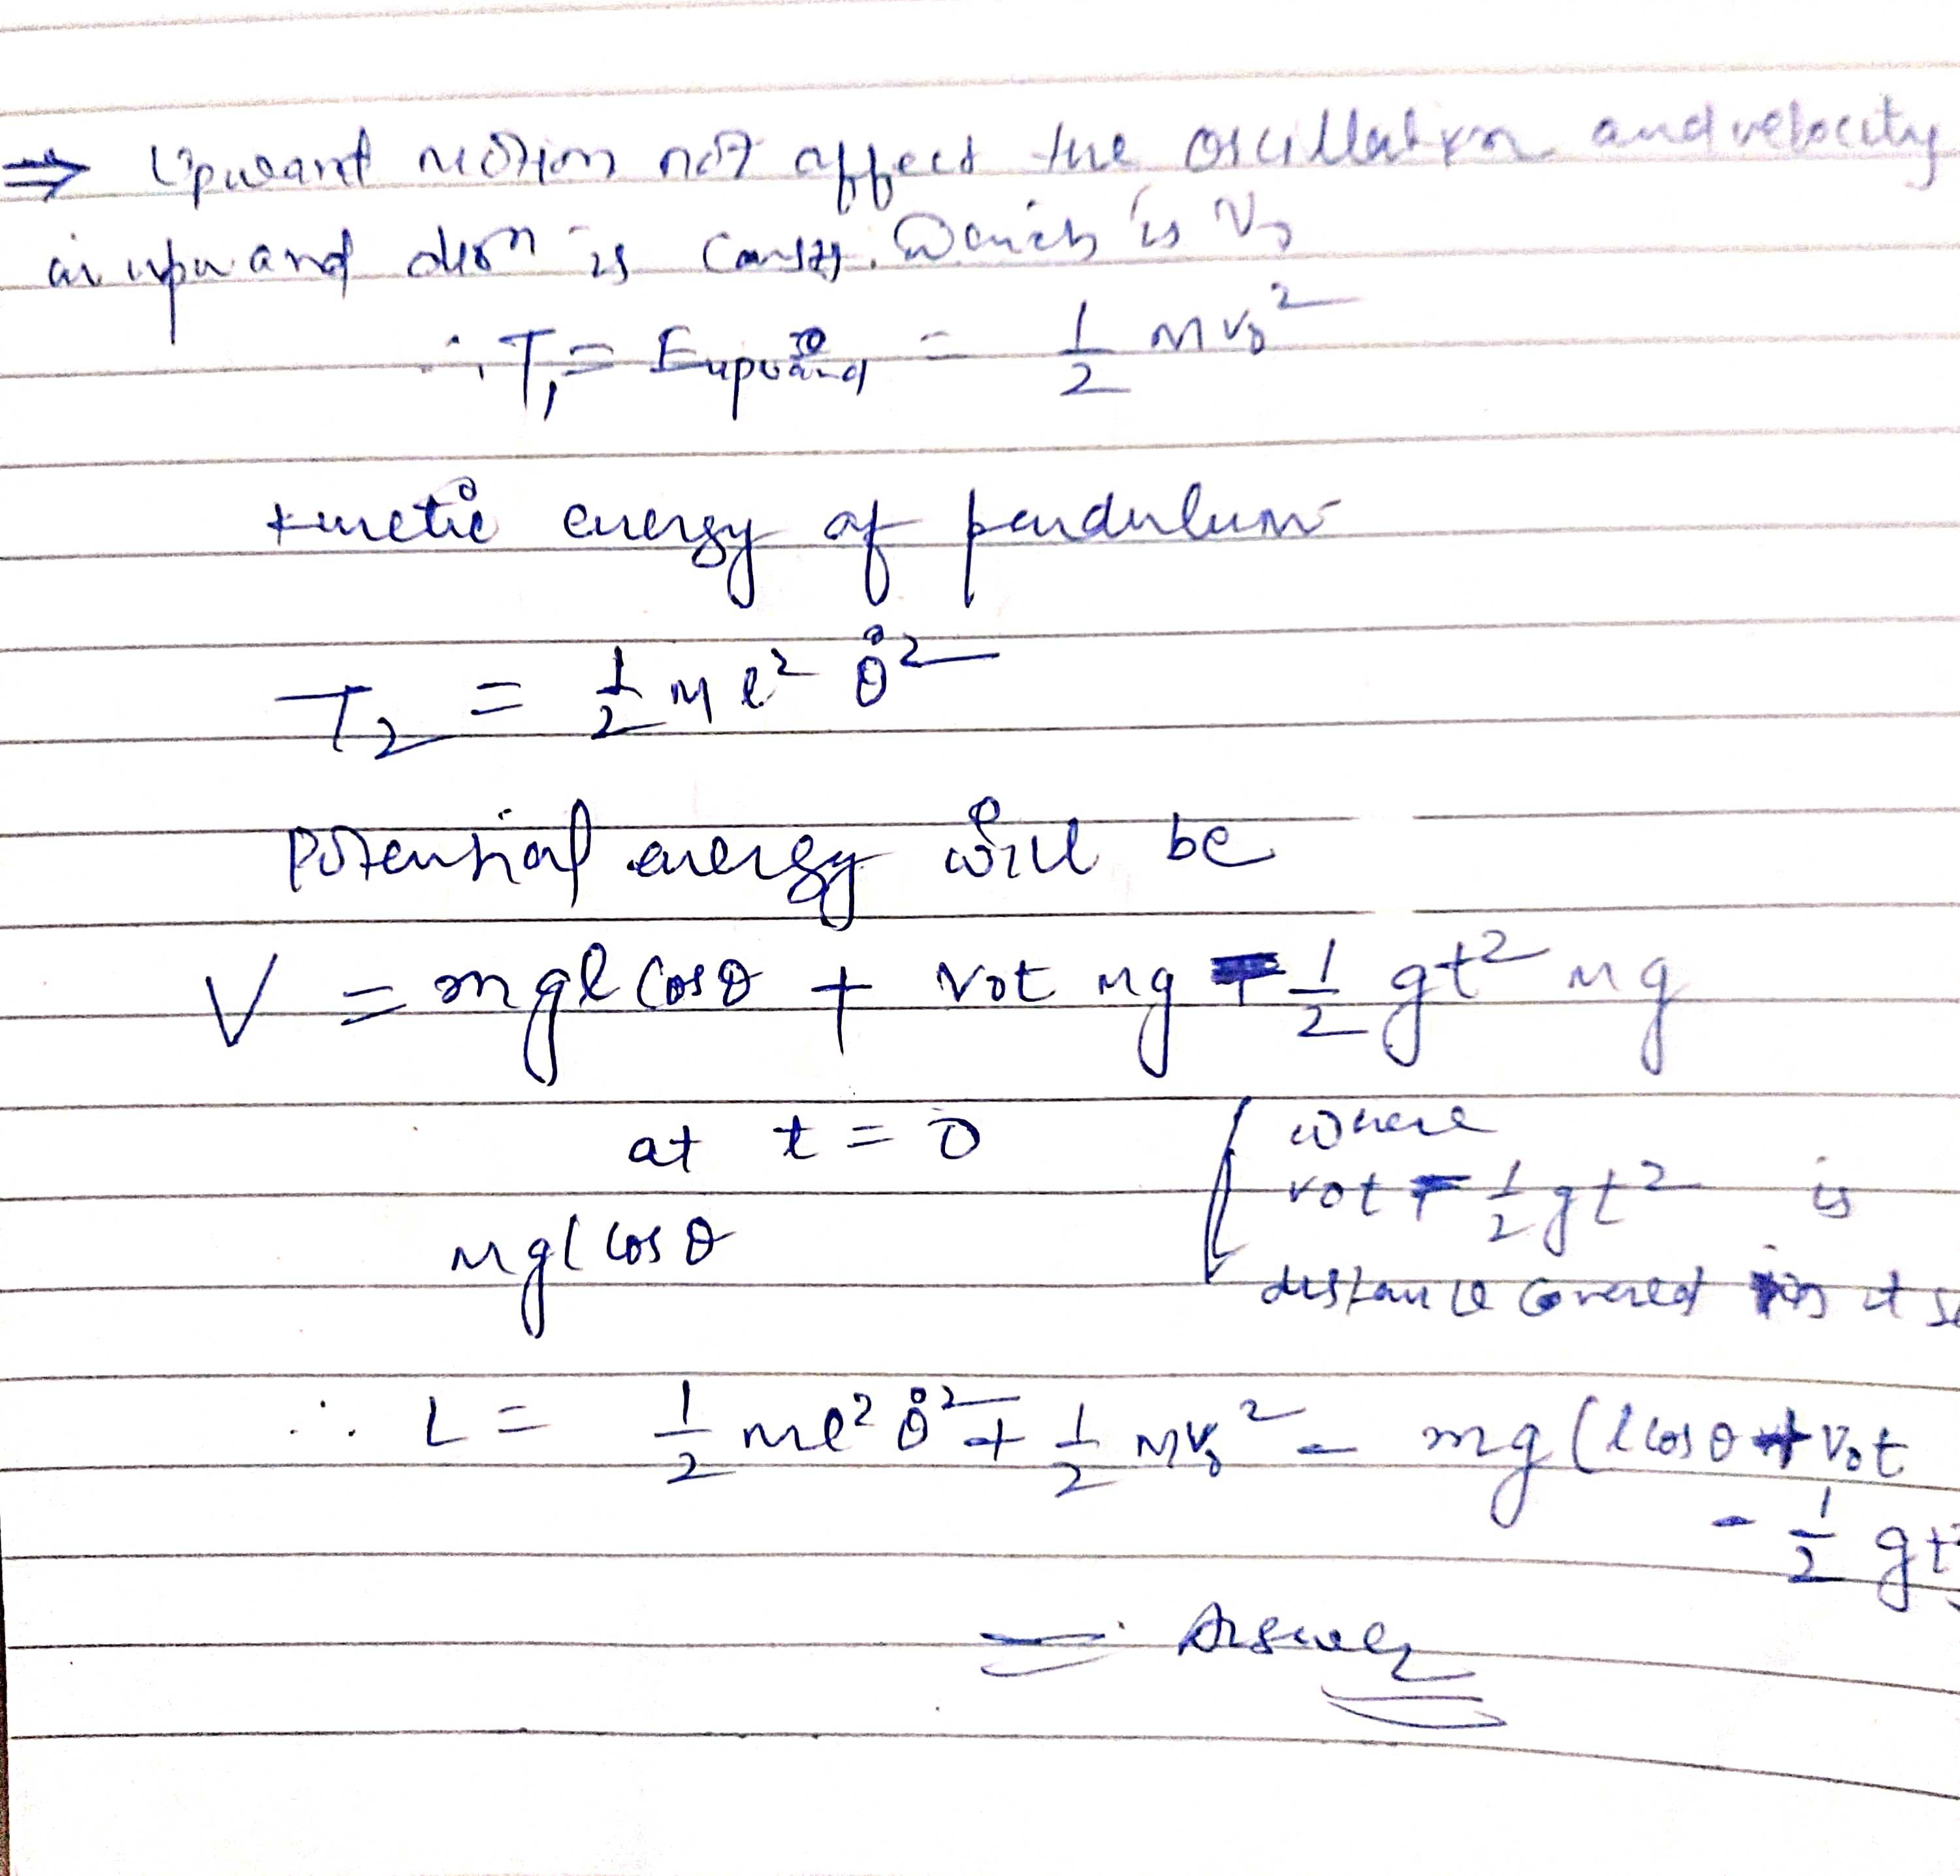 ⇒ Upward motion not affect the oscillation and velocity
in upward dirⁿ is const. Which is V₀
∴ T₁ = Eupward = 1/2 mv₀²
kinetic energy of pendulum
T₂ = 1/2 m l² θ̇²
Potential energy will be
V = mgl cosθ + v₀t mg - 1/2 gt² mg
at t = 0
mgl cosθ
where
v₀t - 1/2 gt² is
distance covered in t
∴ L = 1/2 ml² θ̇² + 1/2 mv₀² - mg (l cosθ + v₀t
- 1/2 gt²
= Answer